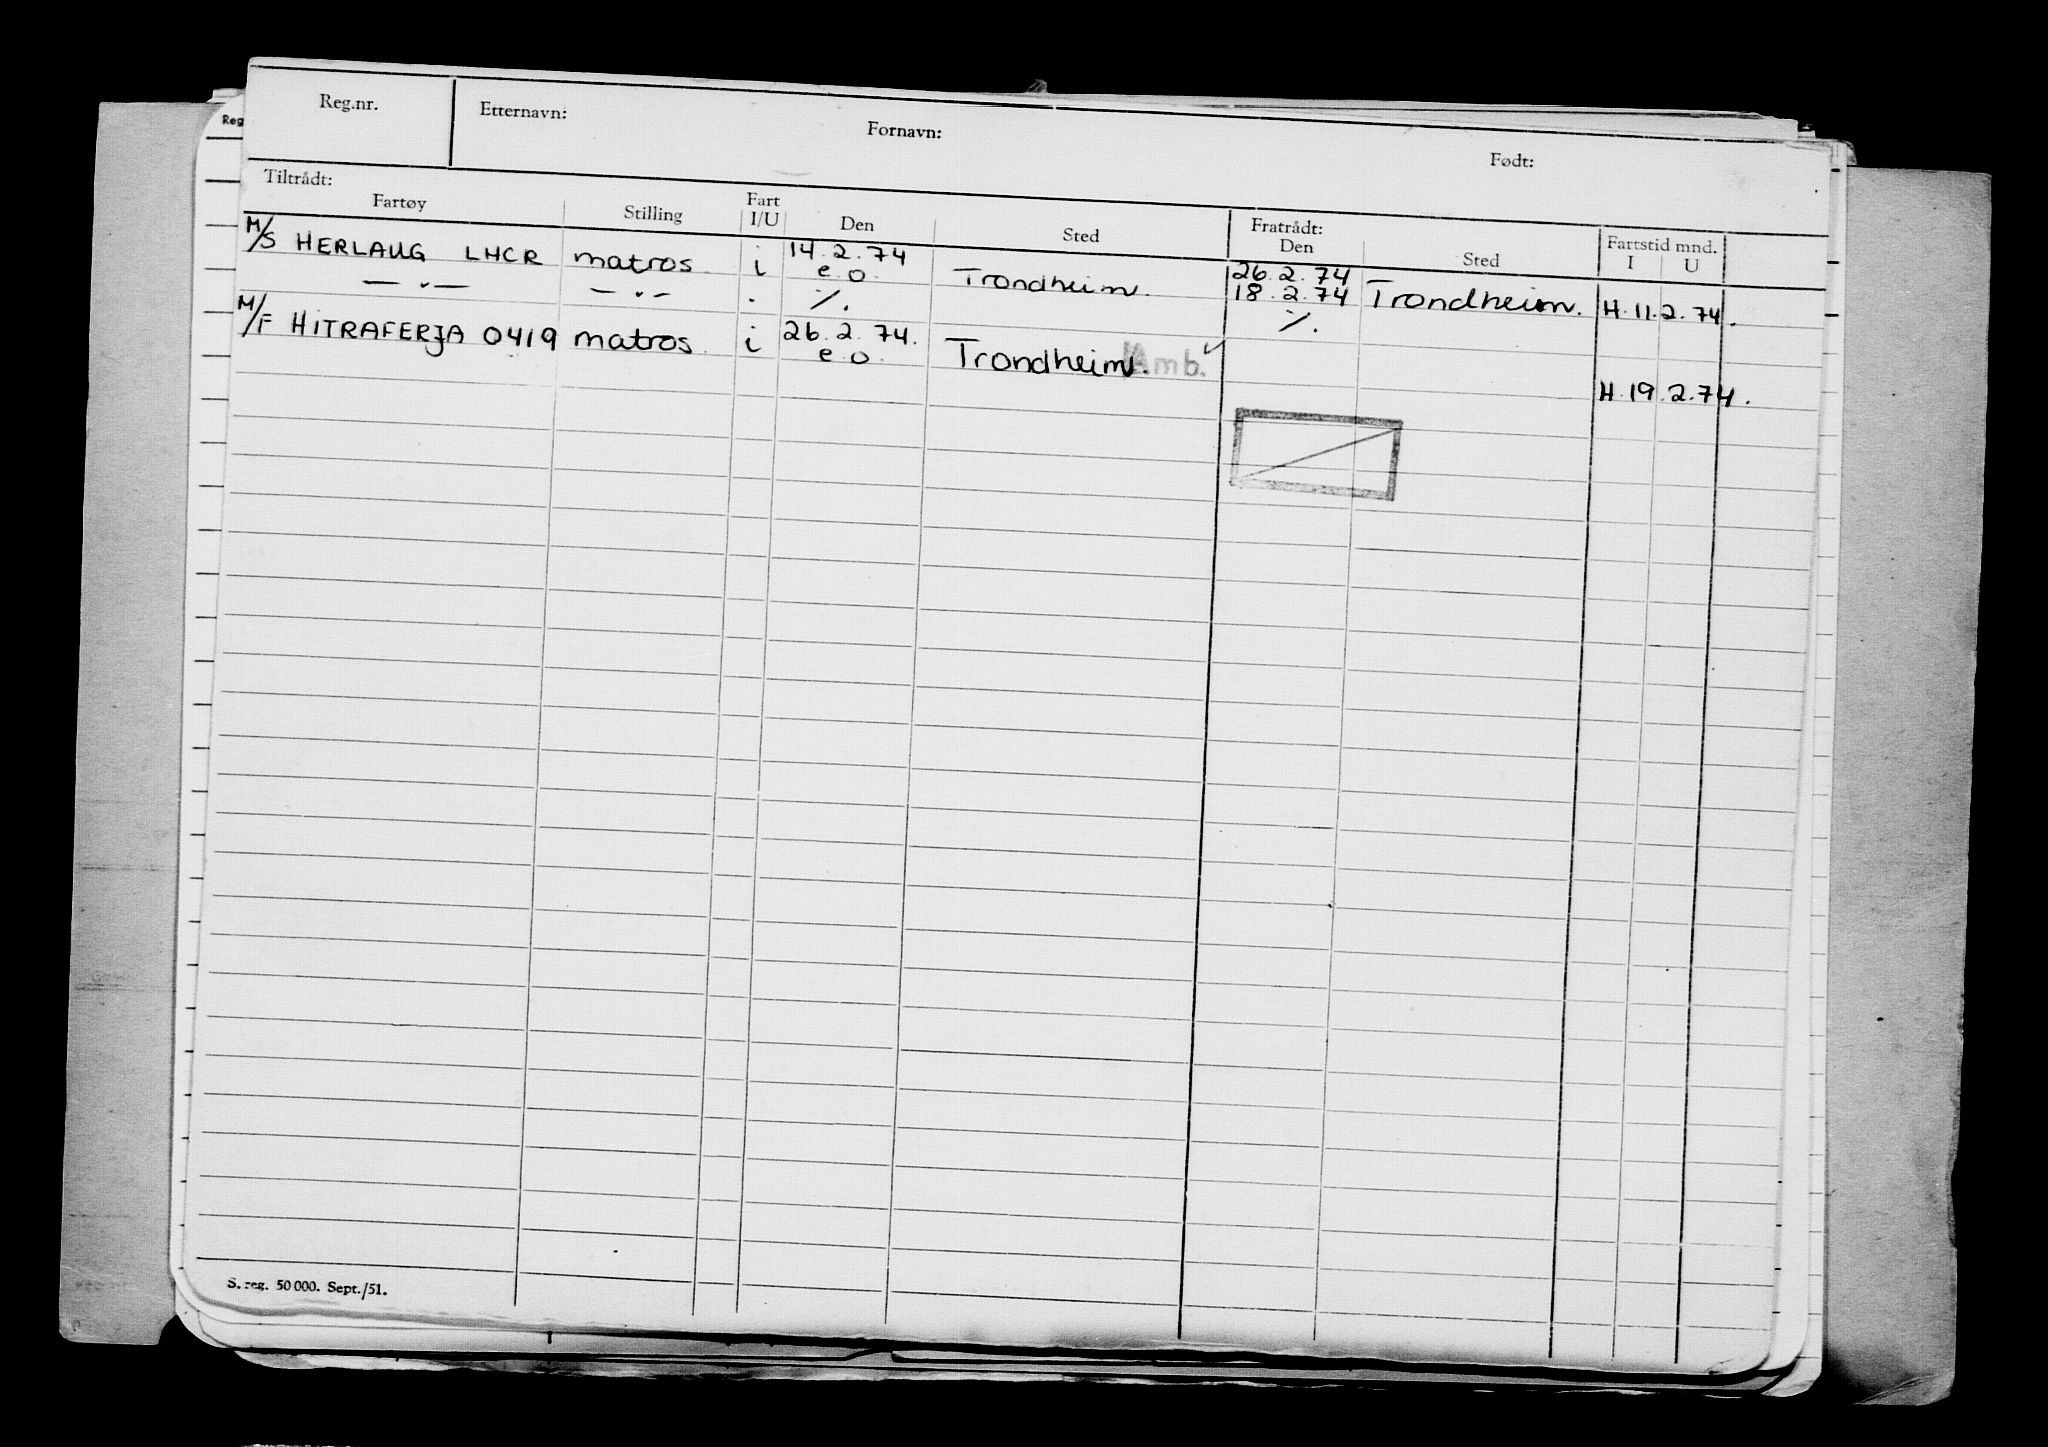 Reg
Reg.nr. Etternavn: Fornavn: Født:
Tiltrådt: Fratrådt:
Fartøy Stilling Fart I/U Den Sted Den Sted Fartstid mnd. I U
M/S HERLAUG LHCR matros i 14.2.74 e.o. Trondheim. 26.2.74
— " — — " — . ٪. 18.2.74 Trondheim. H. 11.2.74.
M/F HITRAFERJA 0419 matros i 26.2.74. e.o. Trondheim. Amb. ٪.
H. 19.2.74.
S. reg. 50 000. Sept./51.